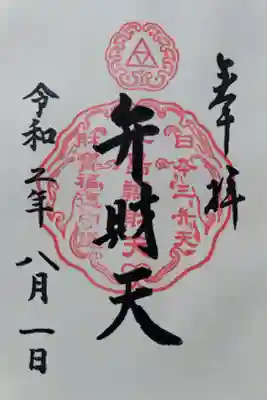 奉拝
日本三弁天
弁財天
令和二年八月一日